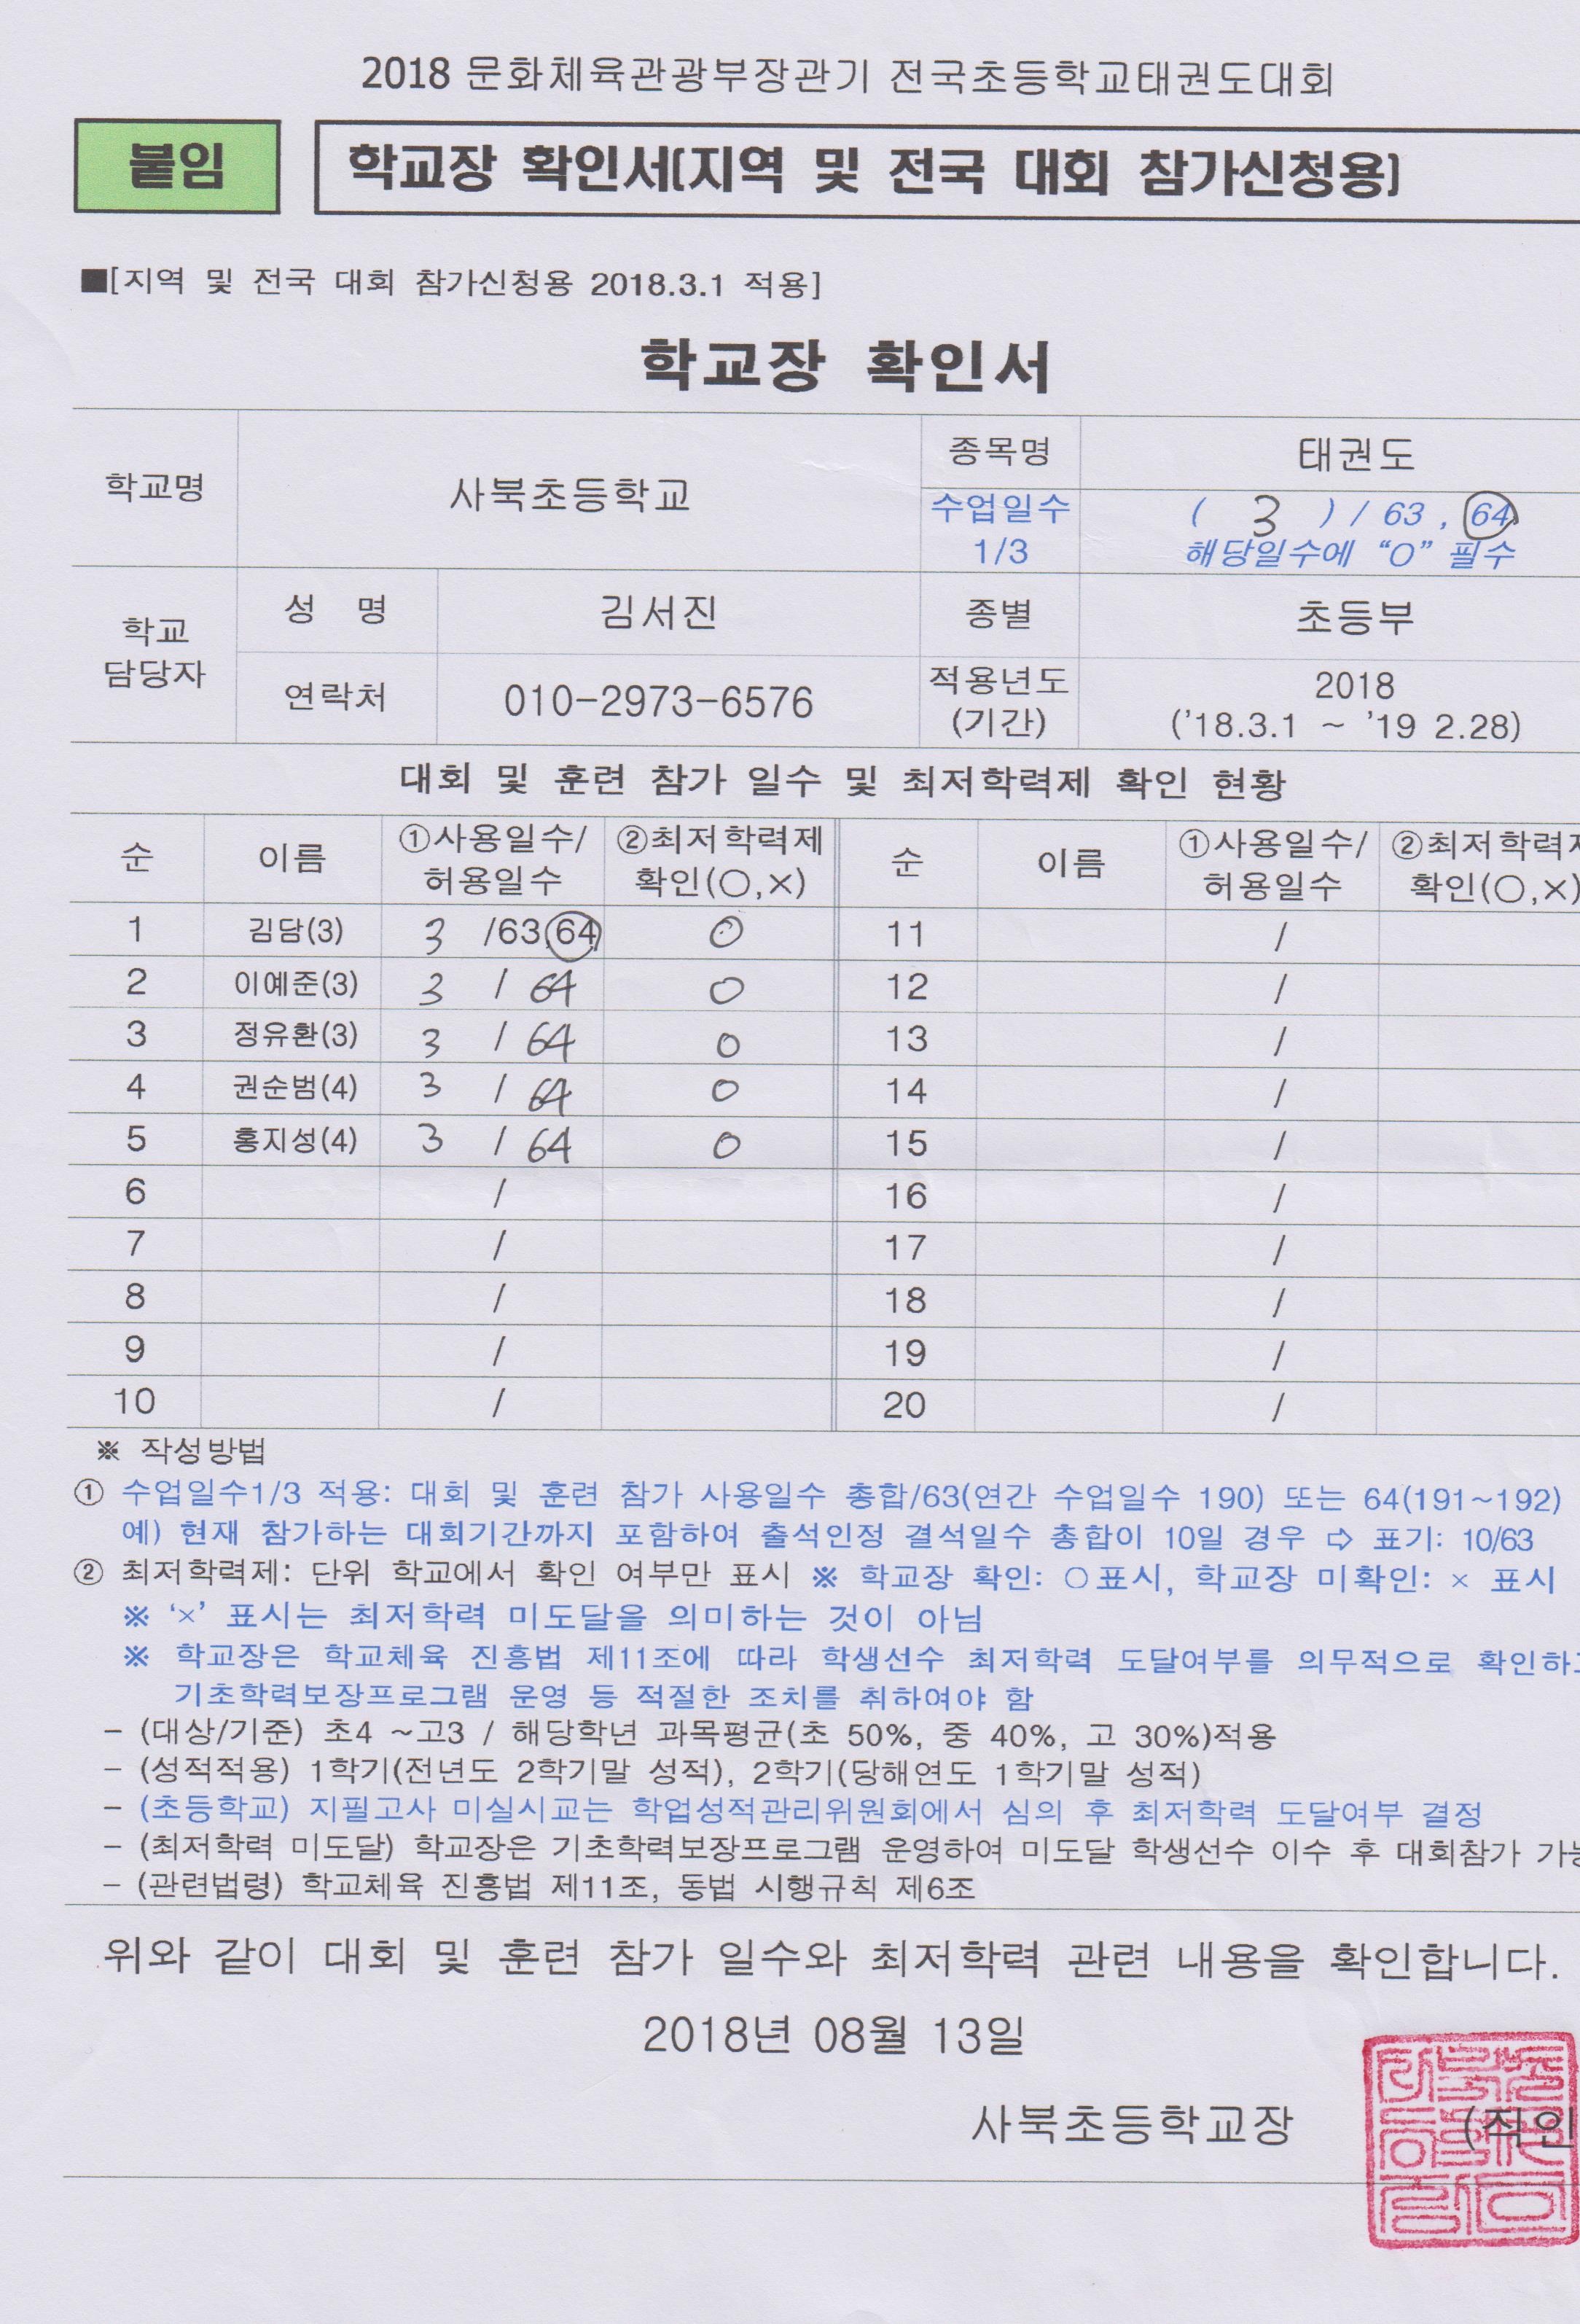 2018 문화체육관광부장관기 전국초등학교태권도대회
붙임
학교장 확인서(지역 및 전국 대회 참가신청용)
■[지역 및 전국 대회 참가신청용 2018.3.1 적용]
학교장 확인서
학교명 사북초등학교 종목명 태권도
수업일수 1/3 ( 3 ) / 63 , 64
해당일수에 “O” 필수
학교 담당자 성 명 김서진 종별 초등부
연락처 010-2973-6576 적용년도 (기간) 2018
('18.3.1 ~ '19 2.28)
대회 및 훈련 참가 일수 및 최저학력제 확인 현황
순 이름 ①사용일수/허용일수 ②최저학력제 확인(○,×) 순 이름 ①사용일수/허용일수 ②최저학력제 확인(○,×)
1 김담(3) 3 /63,64 O 11 /
2 이예준(3) 3 / 64 O 12 /
3 정유환(3) 3 / 64 O 13 /
4 권순범(4) 3 / 64 O 14 /
5 홍지성(4) 3 / 64 O 15 /
6 / 16 /
7 / 17 /
8 / 18 /
9 / 19 /
10 / 20 /
※ 작성방법
① 수업일수1/3 적용: 대회 및 훈련 참가 사용일수 총합/63(연간 수업일수 190) 또는 64(191~192)
예) 현재 참가하는 대회기간까지 포함하여 출석인정 결석일수 총합이 10일 경우 ⇨ 표기: 10/63
② 최저학력제: 단위 학교에서 확인 여부만 표시 ※ 학교장 확인: ○표시, 학교장 미확인: × 표시
※ ‘×’ 표시는 최저학력 미도달을 의미하는 것이 아님
※ 학교장은 학교체육 진흥법 제11조에 따라 학생선수 최저학력 도달여부를 의무적으로 확인하고
기초학력보장프로그램 운영 등 적절한 조치를 취하여야 함
- (대상/기준) 초4 ~고3 / 해당학년 과목평균(초 50%, 중 40%, 고 30%)적용
- (성적적용) 1학기(전년도 2학기말 성적), 2학기(당해연도 1학기말 성적)
- (초등학교) 지필고사 미실시교는 학업성적관리위원회에서 심의 후 최저학력 도달여부 결정
- (최저학력 미도달) 학교장은 기초학력보장프로그램 운영하여 미도달 학생선수 이수 후 대회참가 가능
- (관련법령) 학교체육 진흥법 제11조, 동법 시행규칙 제6조
위와 같이 대회 및 훈련 참가 일수와 최저학력 관련 내용을 확인합니다.
2018년 08월 13일
사북초등학교장 (직인